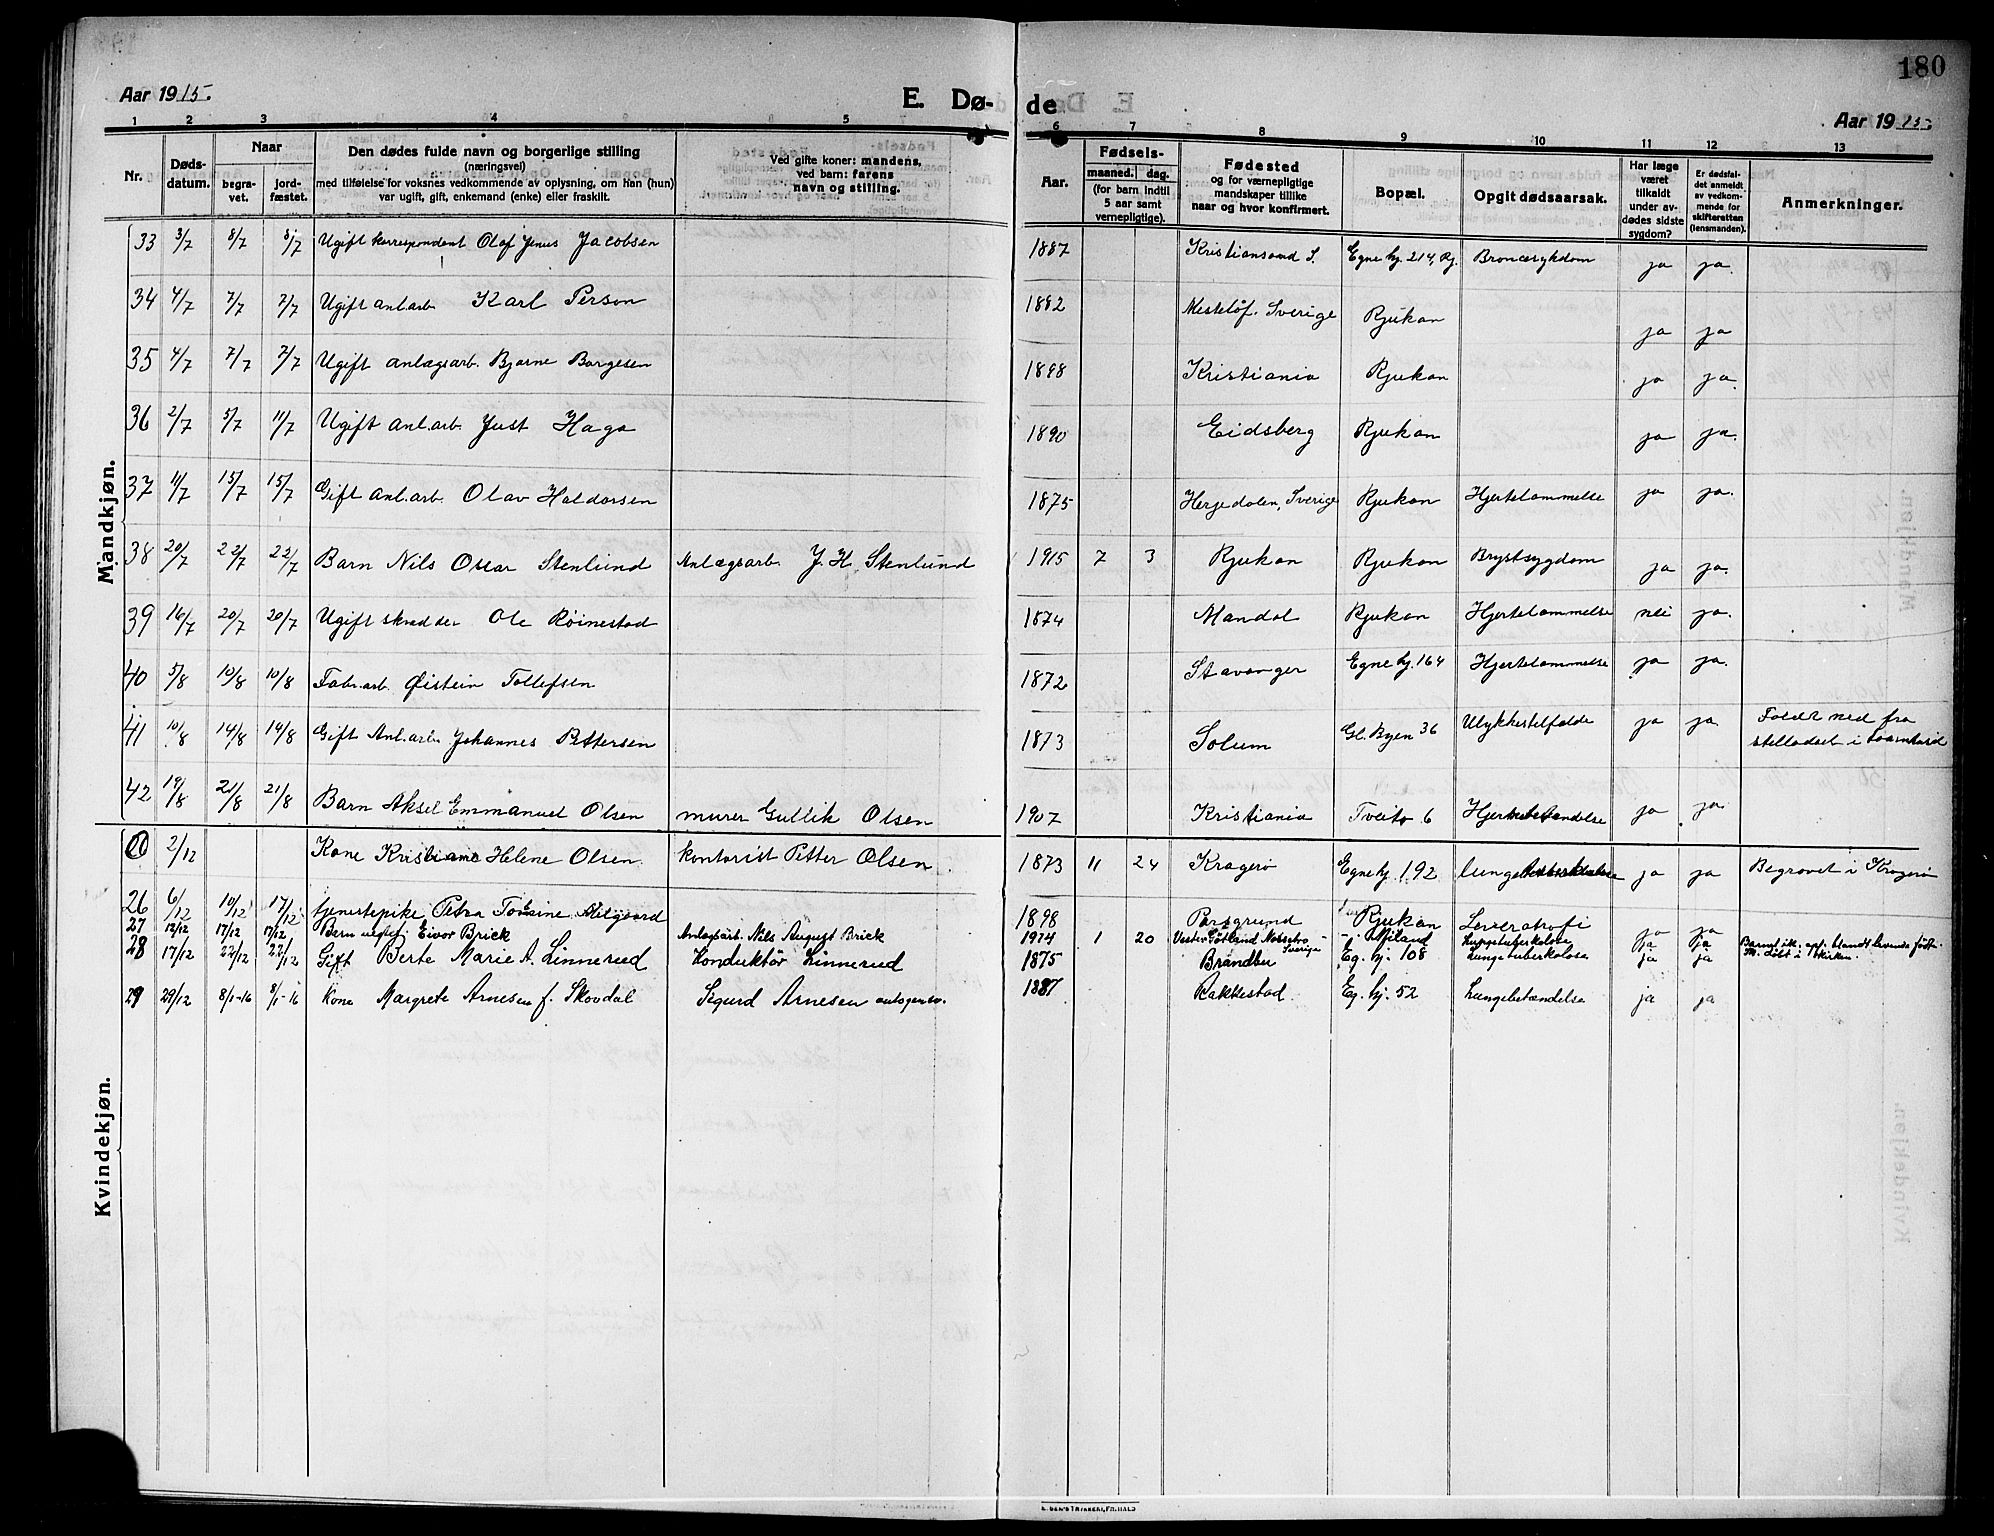 180
Aar 1915.
E. Dø-
de
Aar 1915.
1 2 3 4 5 6 7 8 9 10 11 12 13
Nr.
Døds-
datum.
Naar
begra-
vet.
jord-
fæstet.
Den dødes fulde navn og borgerlige stilling
(næringsvei)
med tilføielse for voksnes vedkommende av oplysning, om han (hun)
var ugift, gift, enkemand (enke) eller fraskilt.
Ved gifte koner: mandens,
ved barn: farens
navn og stilling.
Aar.
Fødsels-
maaned. dag.
(for barn indtil
5 aar samt
vernepligtige).
Fødested
og for værnepligtige
mandskaper tillike
naar og hvor konfirmert.
Bopæl.
Opgit dødsaarsak.
Har læge
været
tilkaldt
under av-
dødes sidste
sygdom?
Er dødsfal-
det anmeldt
av vedkom-
mende for
skifteretten
(lensmanden).
Anmerkninger.
Mandkjøn.
33 3/7 8/7 8/7 Ugift korrespondent Olaf Jenus Jacobsen 1887 Kristiansand S. Egne hj. 214, Rj. Broncesykdom ja ja.
34 4/7 7/7 7/7 Ugift anl.arb. Karl Person 1882 Sverige Rjukan ja ja
35 4/7 7/7 7/7 Ugift anlægsarb. Bjarne Borgesen 1898 Kristiania Rjukan ja ja.
36 2/7 5/7 11/7 Ugift anl.arb. Just Haga 1890 Eidsberg Rjukan ja ja.
37 11/7 15/7 15/7 Gift anl.arb. Olav Haldorsen 1875 Hergedalen, Sverige Rjukan Hjertelammelse ja ja.
38 20/7 22/7 22/7 Barn Nils Oscar Stenlund Anlægsarb. J. H. Stenlund 1915 7 3 Rjukan Rjukan Brystsygdom ja ja.
39 16/7 20/7 20/7 Ugift skrædder Ole Røinestad 1874 Mandal Rjukan Hjertelammelse nei ja.
40 5/8 10/8 10/8 Fabr.arb. Øistein Tollefsen 1872 Stavanger Egne hj. 164 Hjertelammelse ja ja.
41 10/8 14/8 14/8 Gift Anl.arb. Johannes Pettersen 1873 Solum Gl. Byen 36 Ulykkestilfælde ja ja. Faldt ned fra
stilladset i
42 19/8 21/8 21/8 Barn Aksel Emmanuel Olsen murer Gullik Olsen 1907 Kristiania Tveito 6 Hjertebetændelse ja ja.
Kvindekjøn.
2/12 Kone Kristiane Helene Olsen. kontorist Petter Olsen 1873 11 24 Kragerø Egne hj. 192 lungetuberkulose ja ja Begravet i Kragerø
26 6/12 10/12 17/12 tjenestepike Petra 1898 Porsgrund Rjukan Leveratrofi ja ja
27 12/12 17/12 17/12 Barn Eivor Brick Anlægsarb. Nils August Brick 1914 1 20 Vester Götland Sverige Mæland Lungetuberkulose ja ja Barnet ik. opt. blandt levende født.
28 17/12 22/12 22/12 Gift Berte Marie A. Linnerud Konduktør Linnerud 1875 Brandbu Eg. hj. 108 Lungetuberkolose ja ja
29 29/12 8/1-16 8/1-16 Kone Margrete Arnesen f. Skovdal Sigurd Arnesen 1887 Rakkestad. Eg. hj. 52 Lungebetændelse ja ja